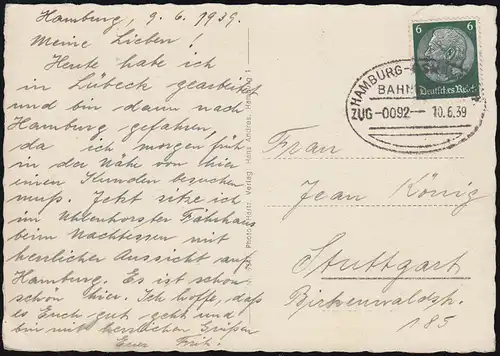 Hamburg, 9.6.1939.
Meine Lieben!
Heute habe ich
in Lübeck gearbeitet
und bin dann nach
Hamburg gefahren,
da ich morgen früh
in der Nähe von hier
einen Kunden besuchen
muß. Jetzt sitze ich
im Uhlenhorster Fährhaus
beim Nachtessen mit
herrlicher Aussicht auf
Hamburg. Es ist schon
schön hier. Ich hoffe, daß
es Euch gut geht und
bin mit herzlichen Grüßen
Euer Fritz!
Photo u. Verlag Hans Andres, Hamburg 1
6 6
Deutsches Reich
HAMBURG-
BAHN
ZUG-0092- 10.6.39
Frau
Jean König
Stuttgart
Birkenwaldstr.
185